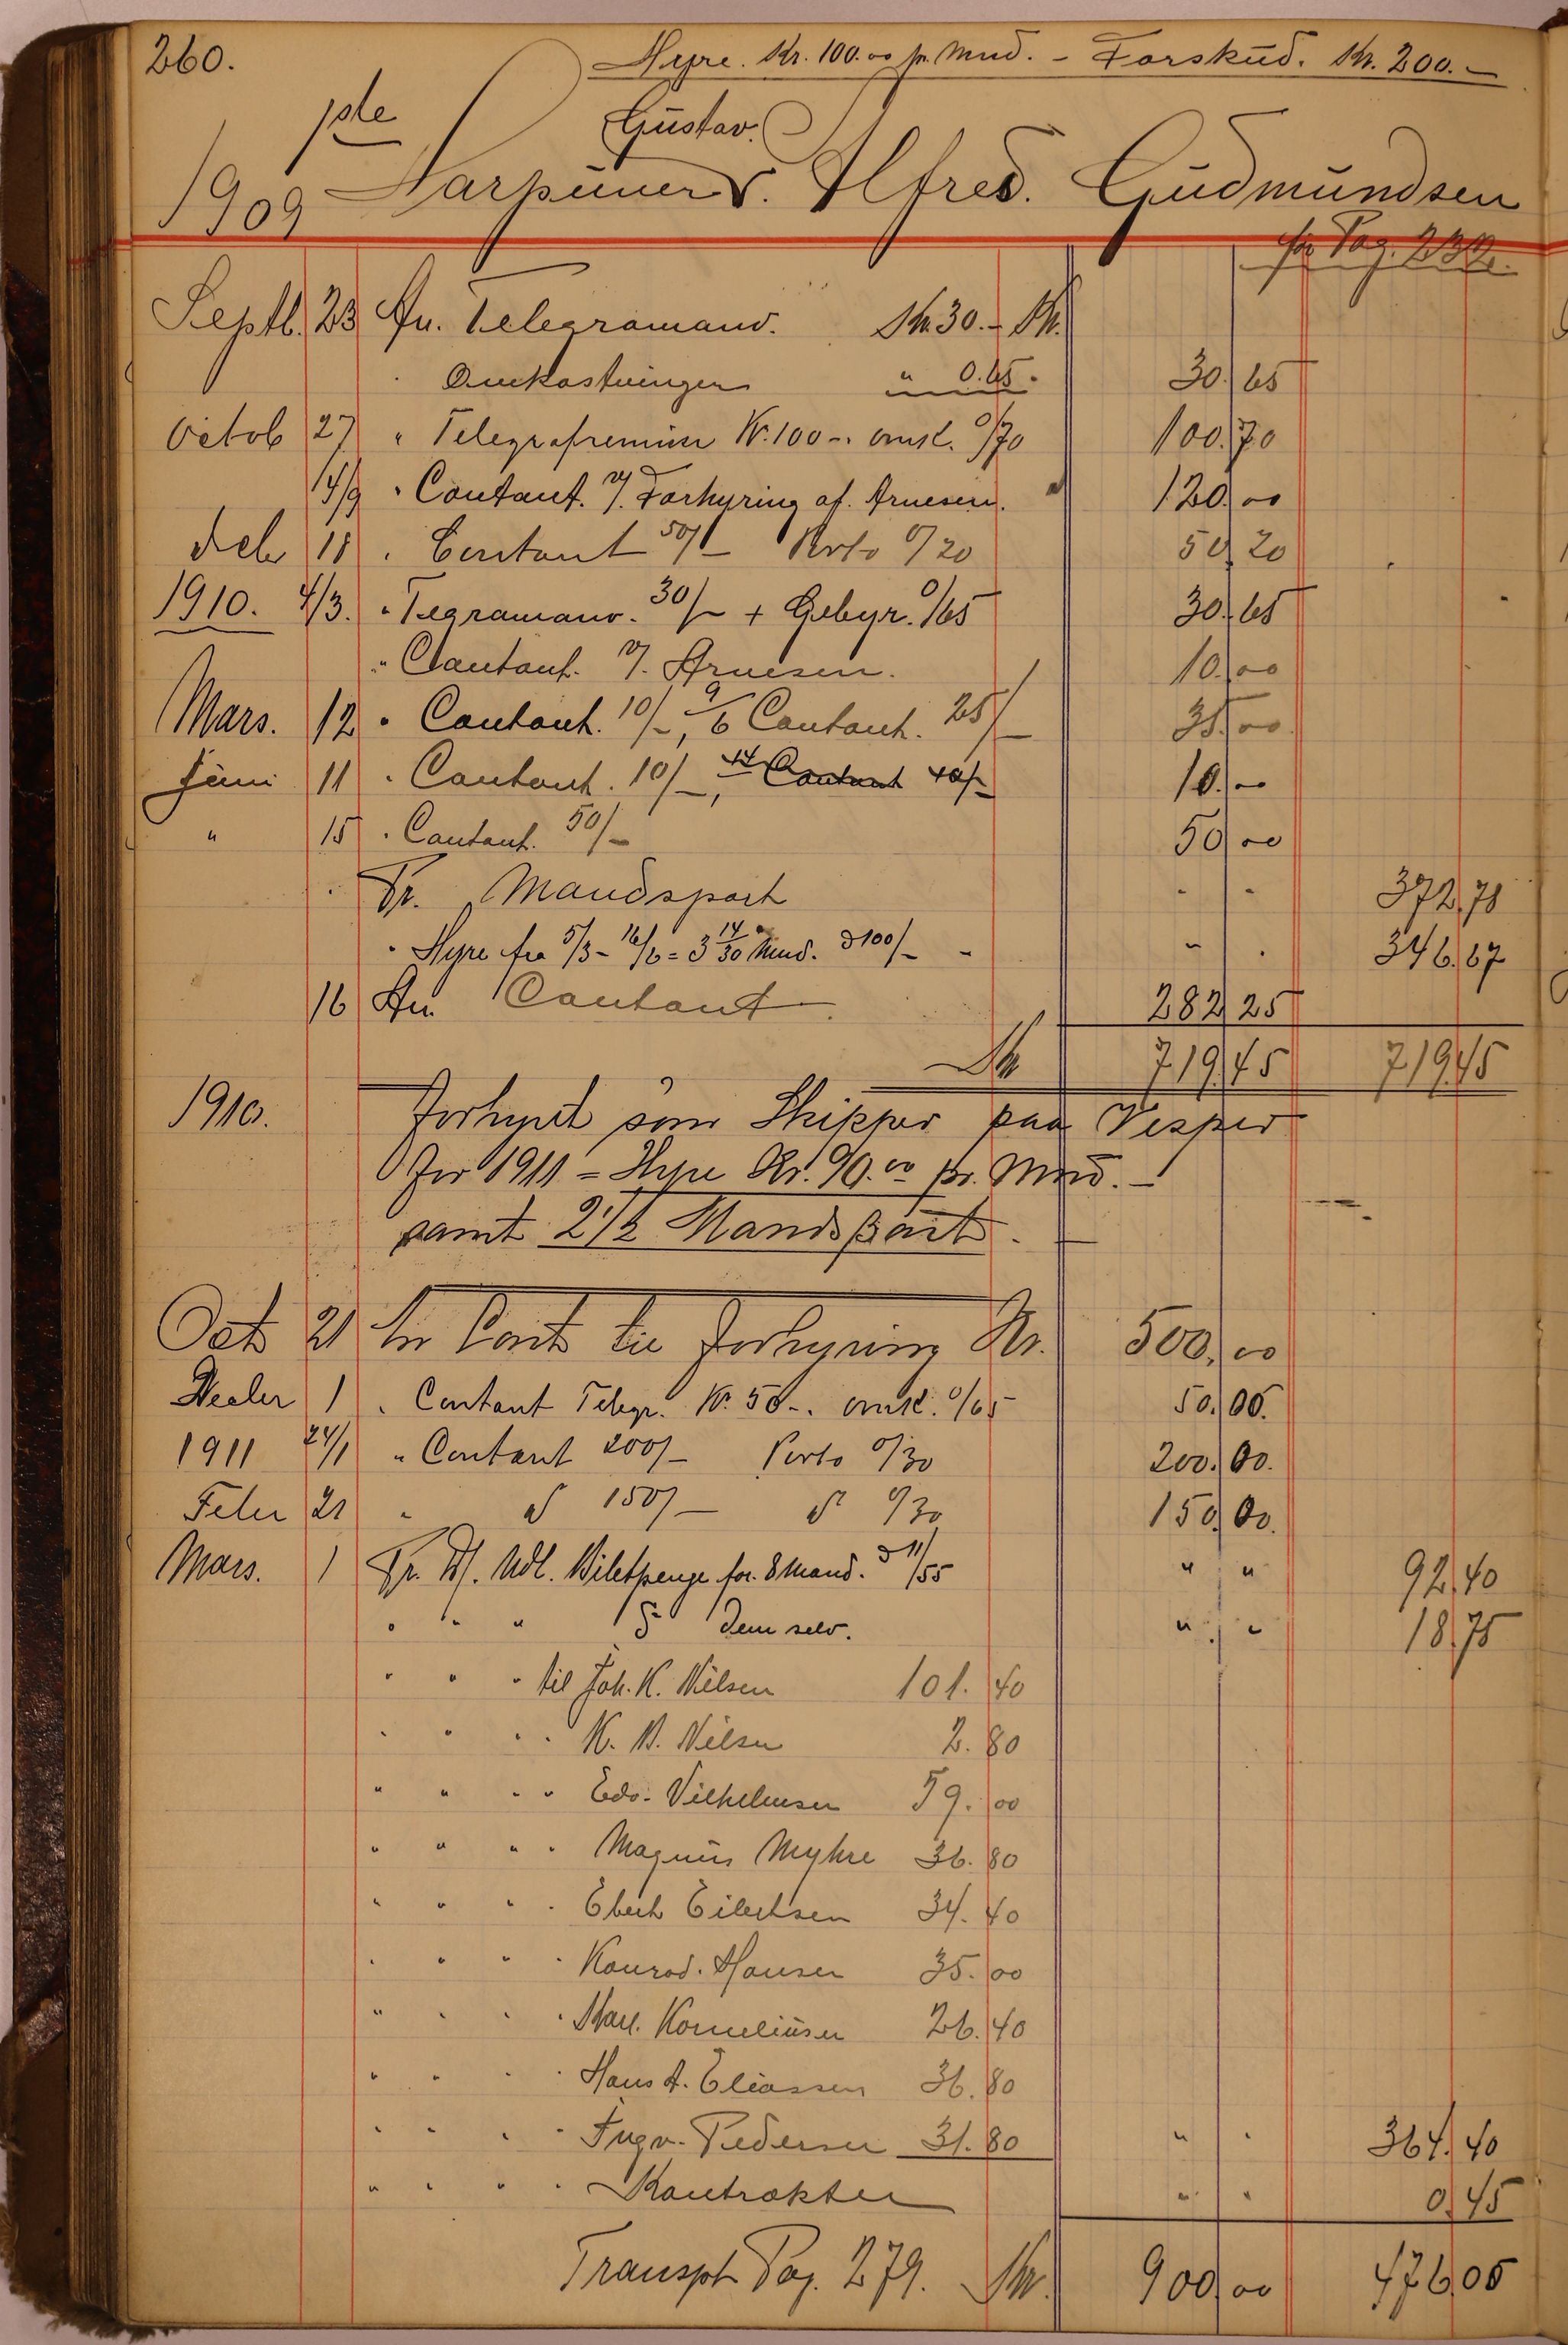 260.
Hyre. Kr. 100.00 pr. Mnd. - Forskud. Kr. 200.-
1ste
Gustav.
1909 Harpuner. Alfred. Gudmundsen
fr. Pag. 232.
Septb. 23 An. Telegramanv. Kr. 30.- Kr.
Omkostninger " 0.65. 30.65
Octob 27 " Telegrafremisse Kr. 100-. omk. 0/70 100.70
14/9 " Contant. v/. Forhyring af. Arnesen. 120.00
Deb 18 " Contant 50/- Porto 0/20 50.20
1910. 4/3. " Tegramanv. 30/- + Gebyr. 0/65 30.65
" Contant. v/. Arnesen. 10.00
Mars. 12 " Contant. 10/-, 9/6 Contant. 25/- 35.00
Juni 11 " Contant. 10/-, 14 Contant 40/- 10.00
" 15 " Contant. 50/- 50.00
Pr. Mandspart " " 372.78
" Hyre fra 5/3 - 16/6 = 3 14/30 Mnd. a 100/- - " " 346.67
16 An. Contant 282 25
Kr 719.45 719.45
1910. Forhyret som Skipper paa Vesper
for 1911 = Hyre Kr. 90.00 pr. Mnd. -
samt 2 1/2 Mandspart.
Oct 21 An Cont til Forhyring Kr. 500.00
Decbr 1 " Contant Telegr. Kr. 50-. omk. 0/65 50.00.
1911 24/1 " Contant 200/- Porto 0/30 200.00.
Febr 21 " do 150/- do 0/30 150.00.
Mars. 1 Pr. Df. Udl. Biletpenge for 8 Mand. a 11/55 " " 92.40
" " " do Dem selv. " " 18.75
" " " til Joh. K. Nilsen 101.40
" " " " K. B. Nilsen 2.80
" " " " Edv. Vilhelmsen 59.00
" " " " Magnus Myhre 36.80
" " " " Ebert Eilertsen 34.40
" " " " Konrad. Hansen 35.00
" " " " Karl. Korneliusen 26.40
" " " " Hans A. Eliassen 36.80
" " " " Ingv. Pedersen 31.80 " " 364.40
" " " " Kontrakter " " 0.45
Transpt Pag. 279. Kr. 900.00 476.00